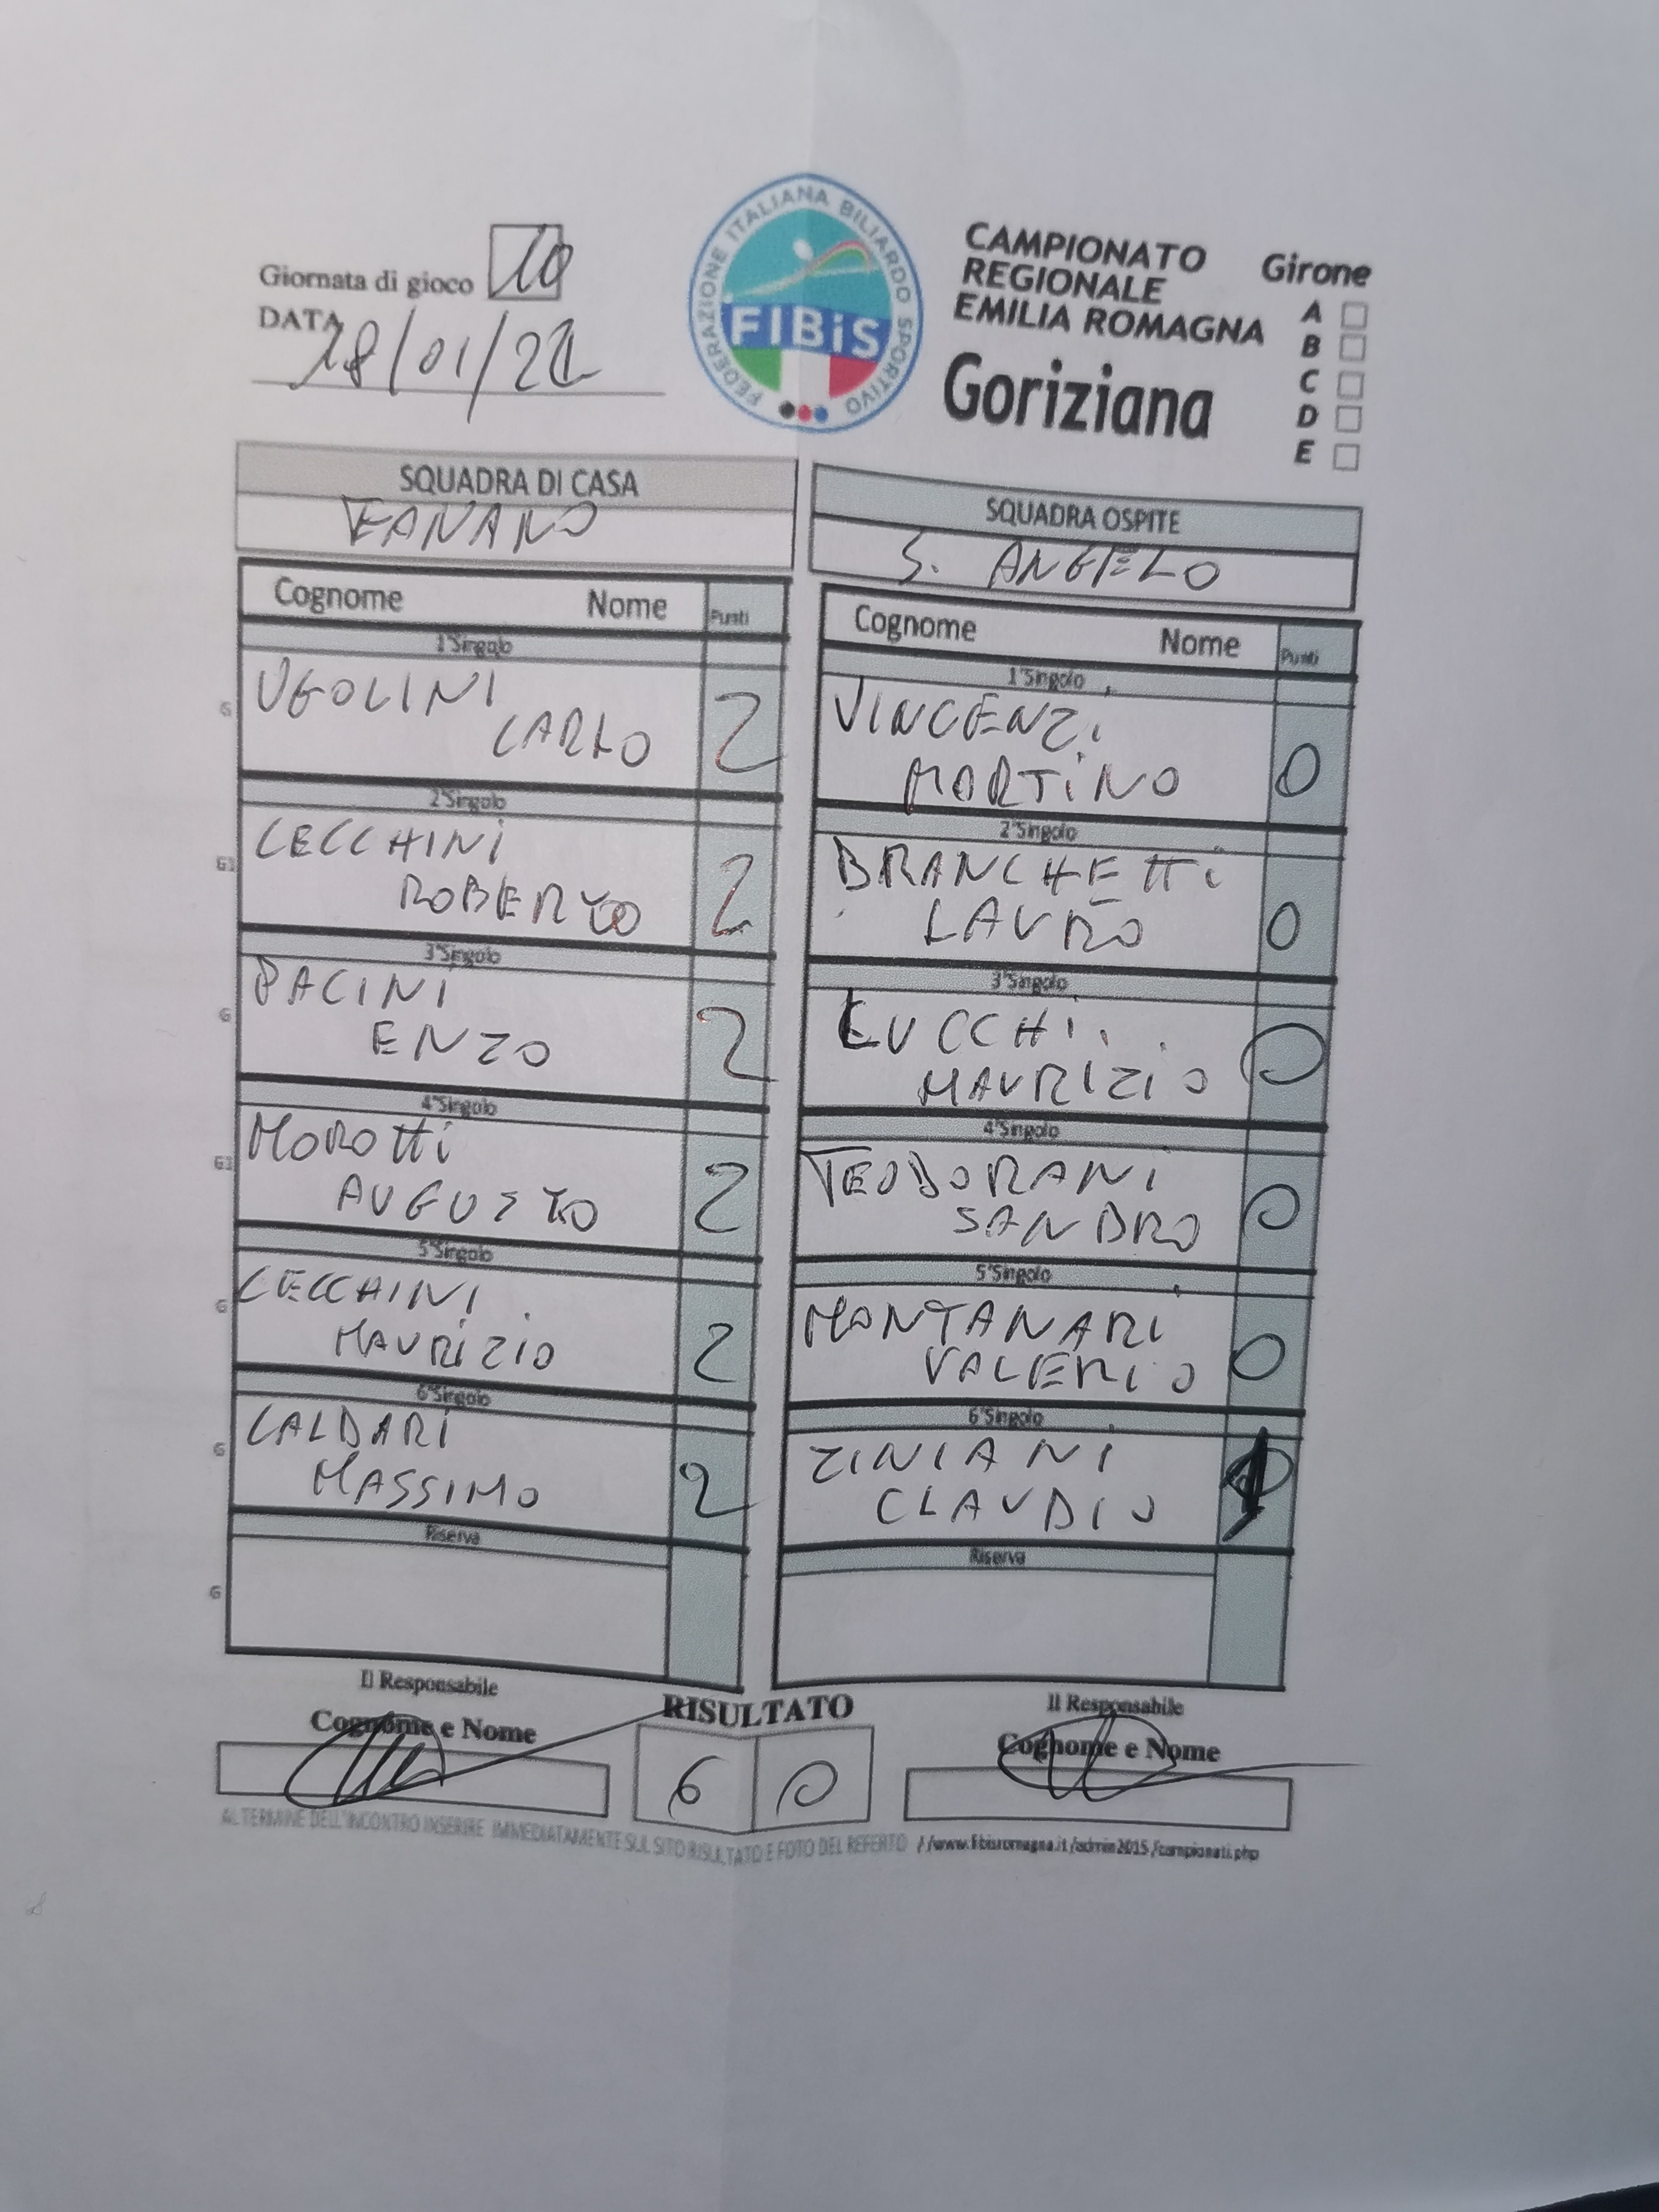 Giornata di gioco 10
DATA
18/01/22
FEDERAZIONE ITALIANA BILIARDO SPORTIVO
FIBiS
CAMPIONATO
REGIONALE
EMILIA ROMAGNA
Goriziana
Girone
A
B
C
D
E
SQUADRA DI CASA
FANANO
SQUADRA OSPITE
S. ANGELO
Cognome Nome Punti
1°Singolo
G
UGOLINI
CARLO 2
2°Singolo
G1
CECCHINI
ROBERTO 2
3°Singolo
G
PACINI
ENZO 2
4°Singolo
G1
MOROTTI
AUGUSTO 2
5°Singolo
G
CECCHINI
MAURIZIO 2
6°Singolo
G
CALDARI
MASSIMO 2
Riserva
G
Cognome Nome Punti
1°Singolo
VINCENZI
MARTINO 0
2°Singolo
BRANCHETTI
LAURO 0
3°Singolo
LUCCHI
MAURIZIO 0
4°Singolo
TEODORANI
SANDRO 0
5°Singolo
MONTANARI
VALERIO 0
6°Singolo
ZINIANI
CLAUDIO
Riserva
Il Responsabile
Cognome e Nome
RISULTATO
6 0
Il Responsabile
Cognome e Nome
AL TERMINE DELL'INCONTRO INSERIRE IMMEDIATAMENTE SUL SITO RISULTATO E FOTO DEL REFERTO //www.fibisromagna.it/admin2015/campionati.php